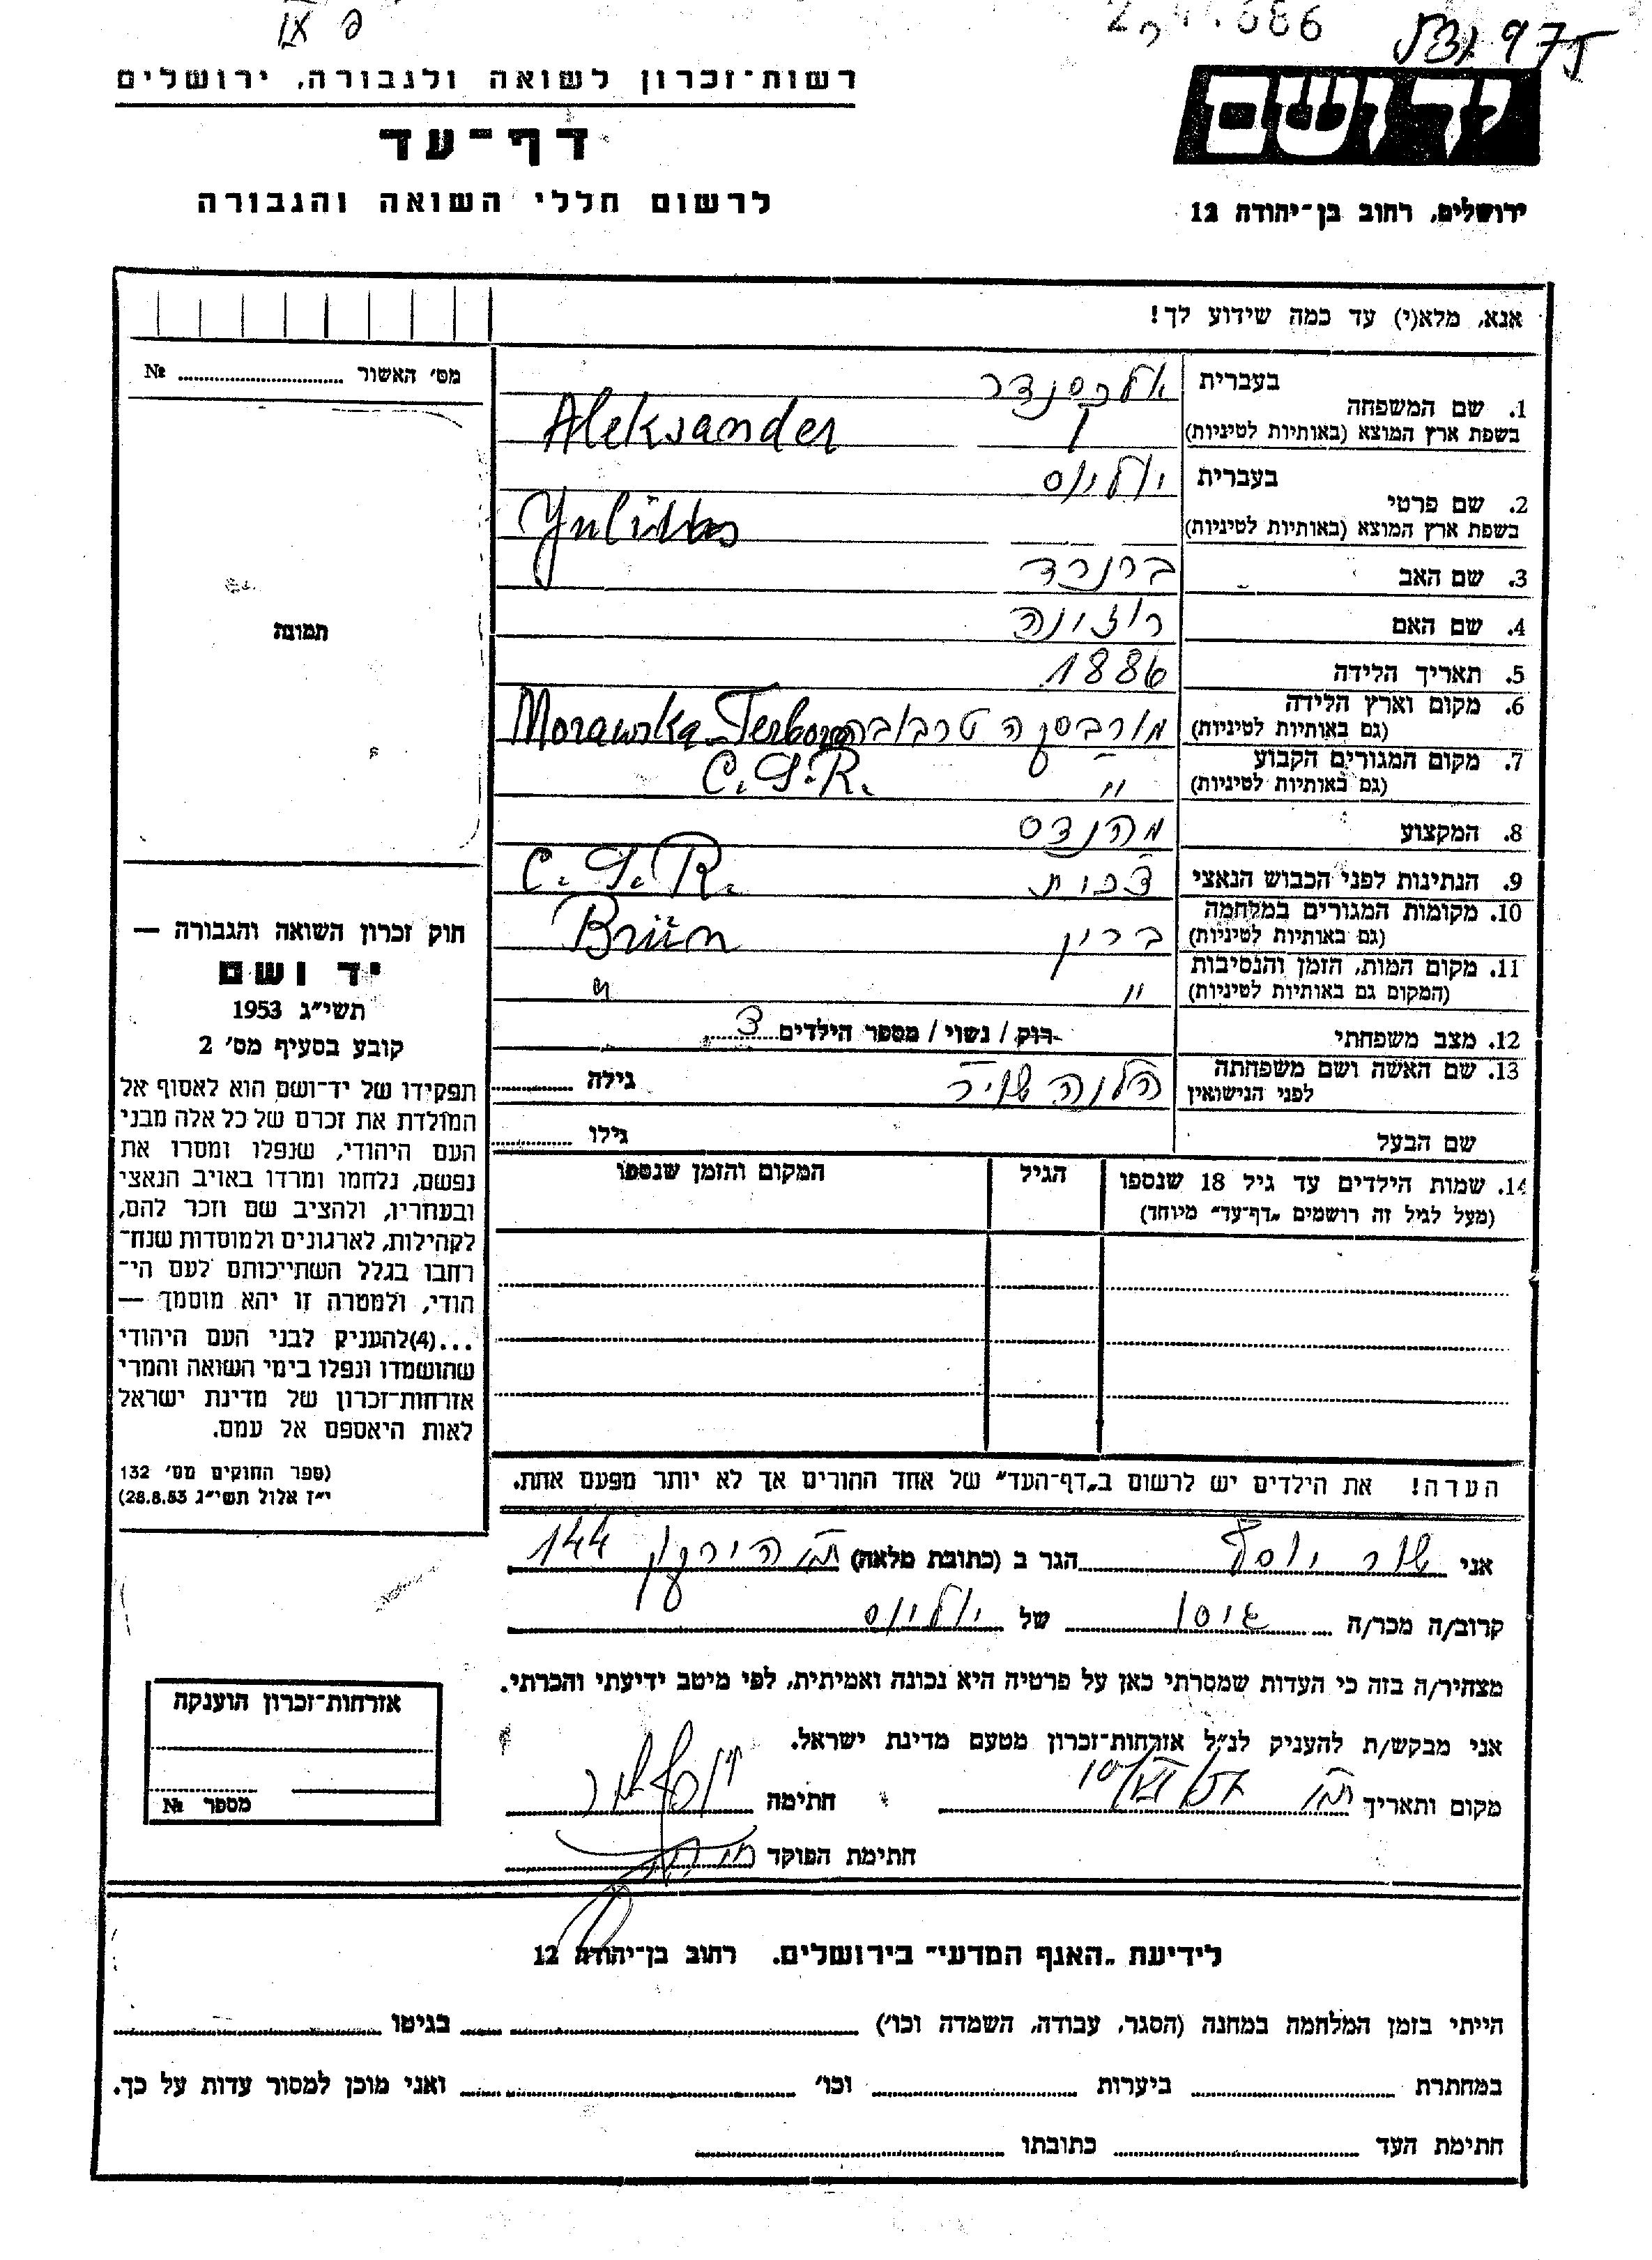 רשות־זכרון לשואה ולגבורה, ירושלים
דף־עד
לרשום חללי השואה והגבורה
ידושם
ירושלים, רחוב בן־יהודה 12
אנא, מלא(י) עד כמה שידוע לך!
מס׳ האשור ........ №
תמונה
1. שם המשפחה בעברית אלכסנדר
בשפת ארץ המוצא (באותיות לטיניות) Aleksander
2. שם פרטי בעברית יוליוס
בשפת ארץ המוצא (באותיות לטיניות)
3. שם האב ברנרד
4. שם האם רוזונה
5. תאריך הלידה 1886
6. מקום וארץ הלידה (גם באותיות לטיניות) מורבסקה טרבובה Morawska Terbowa
7. מקום המגורים הקבוע (גם באותיות לטיניות) " C.S.R.
8. המקצוע מהנדס
9. הנתינות לפני הכבוש הנאצי צכית C.S.R.
10. מקומות המגורים במלחמה (גם באותיות לטיניות) ברין Brün
11. מקום המות, הזמן והנסיבות (המקום גם באותיות לטיניות) " "
12. מצב משפחתי רוק / נשוי / מספר הילדים 3
13. שם האשה ושם משפחתה לפני הנישואין הלנה שיר גילה ........
שם הבעל גילו ........
14. שמות הילדים עד גיל 18 שנספו (מעל לגיל זה רושמים „דף־עד״ מיוחד) הגיל המקום והזמן שנספו
הערה! את הילדים יש לרשום ב„דף־העד״ של אחד ההורים אך לא יותר מפעם אחת.
חוק זכרון השואה והגבורה —
יד ושם
תשי״ג 1953
קובע בסעיף מס׳ 2
תפקידו של יד־ושם הוא לאסוף אל
המולדת את זכרם של כל אלה מבני
העם היהודי, שנפלו ומסרו את
נפשם, נלחמו ומרדו באויב הנאצי
ובעוזריו, ולהציב שם וזכר להם,
לקהילות, לארגונים ולמוסדות שנח־
רבו בגלל השתייכותם לעם הי־
הודי, ולמטרה זו יהא מוסמך —
...(4)להעניק לבני העם היהודי
שהושמדו ונפלו בימי השואה והמרי
אזרחות־זכרון של מדינת ישראל
לאות היאספם אל עמם.
(ספר החוקים מס׳ 132
י״ז אלול תשי״ג 28.8.53)
אני שור יוסף הגר ב (כתובת מלאה) הירקון 144
קרוב/ה מכר/ה גיסו של יוליוס
מצהיר/ה בזה כי העדות שמסרתי כאן על פרטיה היא נכונה ואמיתית, לפי מיטב ידיעתי והכרתי.
אני מבקש/ת להעניק לנ״ל אזרחות־זכרון מטעם מדינת ישראל.
מקום ותאריך חתימה
חתימת הפוקד
אזרחות־זכרון הוענקה
מספר №
לידיעת „האגף המדעי״ בירושלים. רחוב בן־יהודה 12
הייתי בזמן המלחמה במחנה (הסגר, עבודה, השמדה וכו׳) ........ בגיטו ........
במחתרת ........ ביערות ........ וכו׳ ........ ואני מוכן למסור עדות על כך.
חתימת העד ........ כתובתו ........